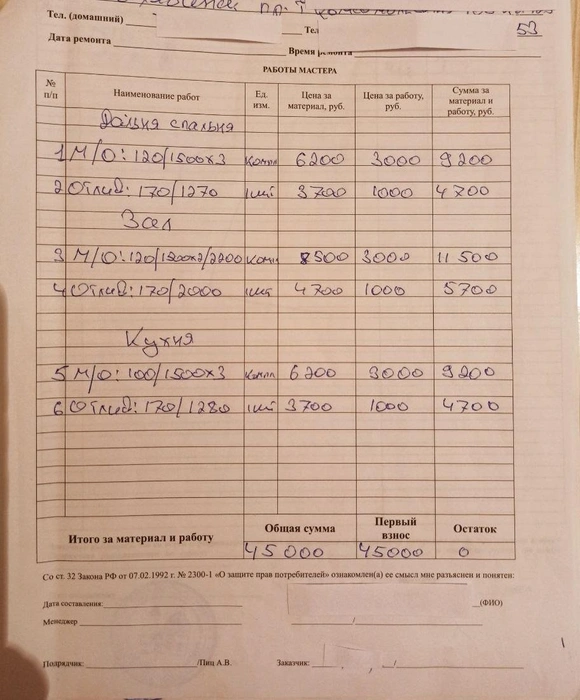 Тел. (домашний) Тел
53
Дата ремонта Время ремонта
РАБОТЫ МАСТЕРА
№ п/п Наименование работ Ед. изм. Цена за материал, руб. Цена за работу, руб. Сумма за материал и работу, руб.
Дальня спальня
1 М/О: 120/1500х3 Компл 6200 3000 9200
2 Отлив: 170/1270 шт 3700 1000 4700
Зал
3 М/О: 120/1500х2/2200 Комп 8500 3000 11 500
4 Отлив: 170/2000 шт 4700 1000 5700
Кухня
5 М/О: 100/1500х3 Компл 6200 3000 9200
6 Отлив: 170/1280 шт 3700 1000 4700
Итого за материал и работу Общая сумма Первый взнос Остаток
45000 45000 0
Со ст. 32 Закона РФ от 07.02.1992 г. № 2300-1 «О защите прав потребителей» ознакомлен(а) ее смысл мне разъяснен и понятен:
Дата составления: (ФИО)
Менеджер /
Подрядчик: /Пиц А.В. Заказчик: /